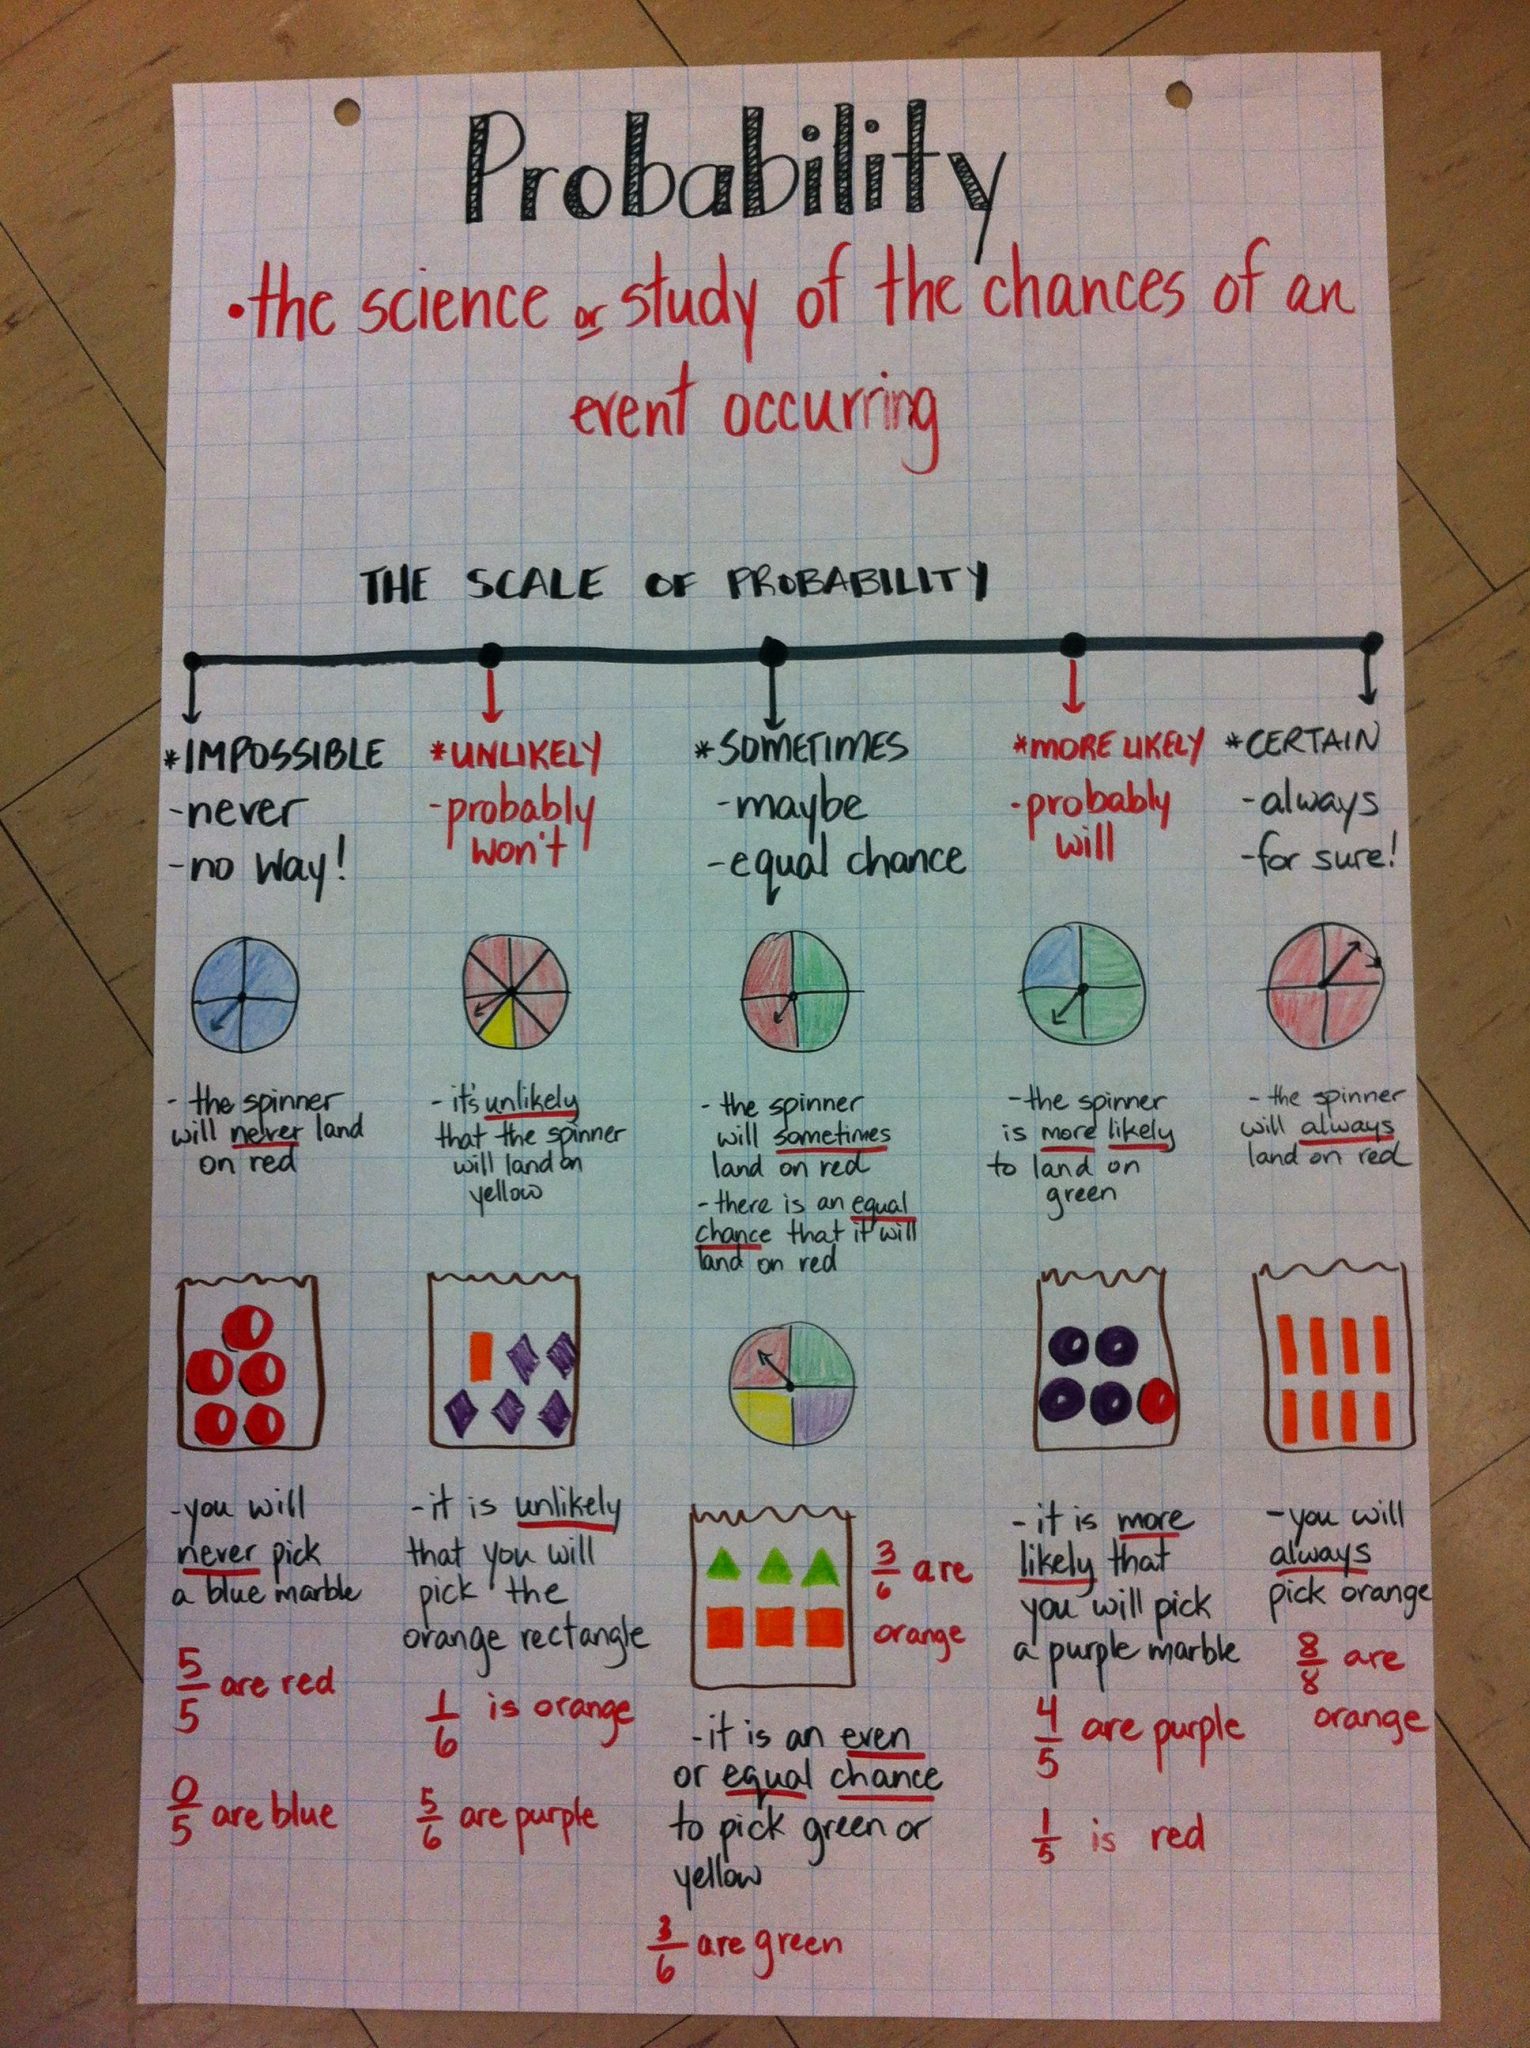 Probability
•the science or study of the chances of an
event occurring
THE SCALE OF PROBABILITY
*IMPOSSIBLE
-never
-no way!
- the spinner
will never land
on red
-you will
never pick
a blue marble
5/5 are red
0/5 are blue
*UNLIKELY
-probably
won't
- it's unlikely
that the spinner
will land on
yellow
-it is unlikely
that you will
pick the
orange rectangle
1/6 is orange
5/6 are purple
*SOMETIMES
-maybe
-equal chance
- the spinner
will sometimes
land on red
-there is an equal
chance that it will
land on red
3/6 are
orange
-it is an even
or equal chance
to pick green or
yellow
3/6 are green
*MORE LIKELY
-probably
will
-the spinner
is more likely
to land on
green
-it is more
likely that
you will pick
a purple marble
4/5 are purple
1/5 is red
*CERTAIN
-always
-for sure!
- the spinner
will always
land on red
-you will
always
pick orange
8/8 are
orange